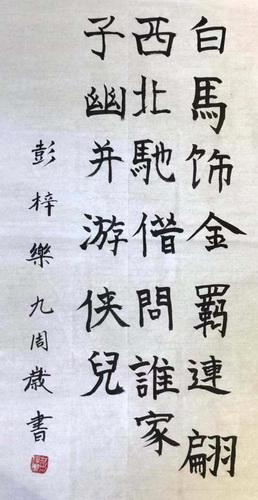 白馬饰金羁連翩
西北馳借問誰家
子幽并游侠兒
彭梓樂九周歲書